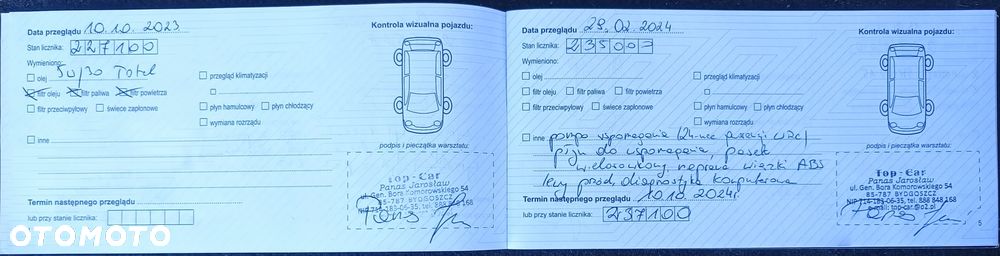 Data przeglądu 10.10.2023
Kontrola wizualna pojazdu:
Stan licznika: 227100
Wymieniono:
olej 5W30 Total
przegląd klimatyzacji
filtr oleju filtr paliwa filtr powietrza
filtr przeciwpyłowy świece zapłonowe
płyn hamulcowy płyn chłodzący
wymiana rozrządu
inne
podpis i pieczątka warsztatu:
Top-Car
Panas Jarosław
ul. Gen. Bora Komorowskiego 54
85-787 BYDGOSZCZ
NIP 714-183-06-35, tel. 888 848 168
Termin następnego przeglądu
lub przy stanie licznika:
OTOMOTO
Data przeglądu 29.02.2024
Kontrola wizualna pojazdu:
Stan licznika: 235003
Wymieniono:
olej
przegląd klimatyzacji
filtr oleju filtr paliwa filtr powietrza
filtr przeciwpyłowy świece zapłonowe
płyn hamulcowy płyn chłodzący
wymiana rozrządu
inne pompa wspomagania (24-mce
płyn do wspomagania, pasek
podpis i pieczątka warsztatu:
wielorowkowy naprawa wiązki ABS
lewy przód, diagnostyka komputerowa
Top-Car
Panas Jarosław
ul. Gen. Bora Komorowskiego 54
85-787 BYDGOSZCZ
NIP 714-183-06-35, tel. 888 848 168
e-mail: top-car@o2.pl
Termin następnego przeglądu 10.10.2024r
lub przy stanie licznika: 237100
5